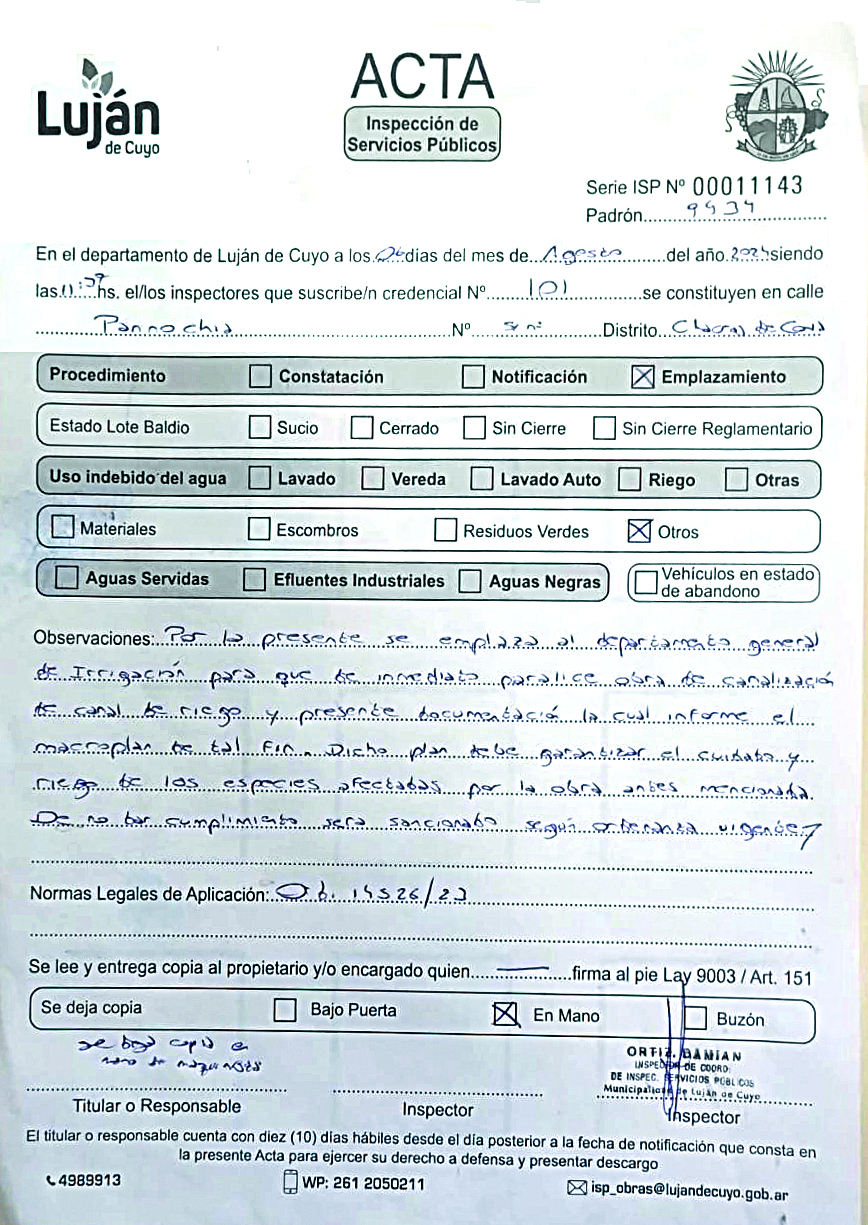 Luján
de Cuyo
ACTA
Inspección de
Servicios Públicos
Serie ISP Nº 00011143
Padrón 9434
En el departamento de Luján de Cuyo a los 06 días del mes de Agosto del año 202 siendo
las 11: hs. el/los inspectores que suscribe/n credencial Nº 101 se constituyen en calle
Parrochia Nº s/nº Distrito Chacras de Coria
Procedimiento Constatación Notificación Emplazamiento
Estado Lote Baldio Sucio Cerrado Sin Cierre Sin Cierre Reglamentario
Uso indebido del agua Lavado Vereda Lavado Auto Riego Otras
Materiales Escombros Residuos Verdes Otros
Aguas Servidas Efluentes Industriales Aguas Negras Vehículos en estado
de abandono
Observaciones: Por la presente se emplaza al departamento general
de Irrigación para que de inmediato paralice obra de canalización
de canal de riego y presente documentación la cual informe el
macroplan de tal fin. Dicho plan debe garantizar el cuidado y
riego de los especies afectadas por la obra antes mencionada.
De no dar cumplimiento sera sancionado según ordenanza vigente
Normas Legales de Aplicación: Od. 14526/23
Se lee y entrega copia al propietario y/o encargado quien firma al pie Lay 9003 / Art. 151
Se deja copia Bajo Puerta En Mano Buzón
se deja copia en
mano de maquinista
ORTIZ, DAMIAN
INSPECTOR DE COORD.
DE INSPEC. SERVICIOS PÚBLICOS
Municipalidad de Luján de Cuyo
Titular o Responsable Inspector Inspector
El titular o responsable cuenta con diez (10) días hábiles desde el día posterior a la fecha de notificación que consta en
la presente Acta para ejercer su derecho a defensa y presentar descargo
4989913 WP: 261 2050211 isp_obras@lujandecuyo.gob.ar